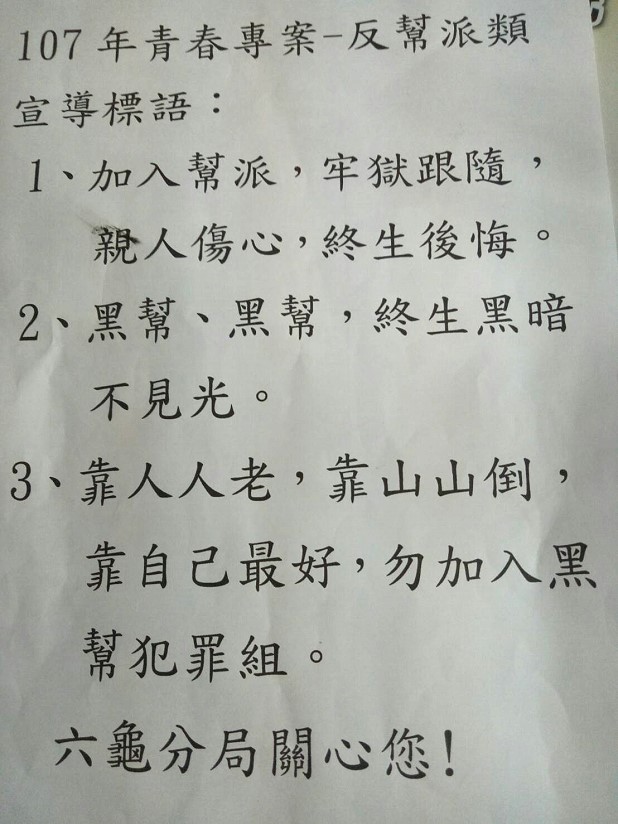 107年青春專案-反幫派類
宣導標語：
1、加入幫派，牢獄跟隨，
親人傷心，終生後悔。
2、黑幫、黑幫，終生黑暗
不見光。
3、靠人人老，靠山山倒，
靠自己最好，勿加入黑
幫犯罪組。
六龜分局關心您!